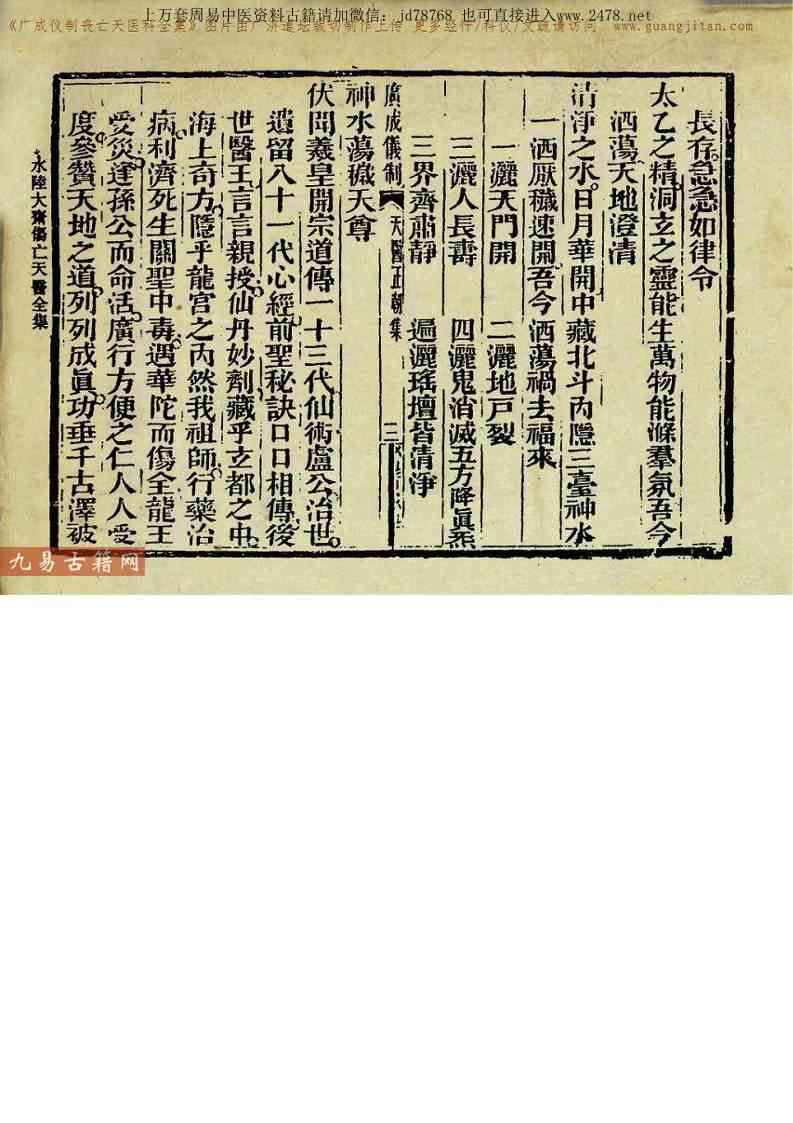 上万套周易中医资料古籍请加微信：jd78768 也可直接进入www.2478.net
《广成仪制丧亡天医科全集》图片由广济道坛裁切制作上传 更多经忏/科仪/文疏请访问 www.guangjitan.com
長存急急如律令
太乙之精洞玄之靈能生萬物能滌羣氛吾今
洒蕩天地澄清
清淨之水日月華開中藏北斗內隱三臺神水
一洒厭穢速開吾今洒蕩禍去福來
一灑天門開 二灑地戶裂
三灑人長壽 四灑鬼消滅五方降眞炁
三界齊肅靜 遍灑瑤壇皆清淨
廣成儀制 天醫正朝集 三
神水蕩穢天尊
伏聞羲皇開宗道傳一十三代仙術盧公治世
遺留八十一代心經前聖秘訣口口相傳後
世醫王言言親授仙丹妙劑藏乎玄都之中
海上奇方隱乎龍宮之內然我祖師行藥治
病利濟死生關聖中毒遇華陀而傷全龍王
受災逢孫公而命活廣行方便之仁人人受
度參贊天地之道列列成眞功垂千古澤被
水陸大齋傷亡天醫全集
九易古籍网